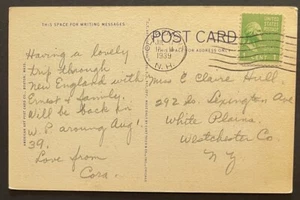 THIS SPACE FOR WRITING MESSAGES
POST CARD
THIS SPACE FOR ADDRESS ONLY
1939
N.H.
1 CENT 1
Having a lovely
trip through
New England with
Ernest & family.
Will be back in
W. P. aroung Aug 1
39.
Love from
Cora.
Miss E Claire Hull.
292 So. Lexington Ave
White Plains.
Westchester Co
N Y